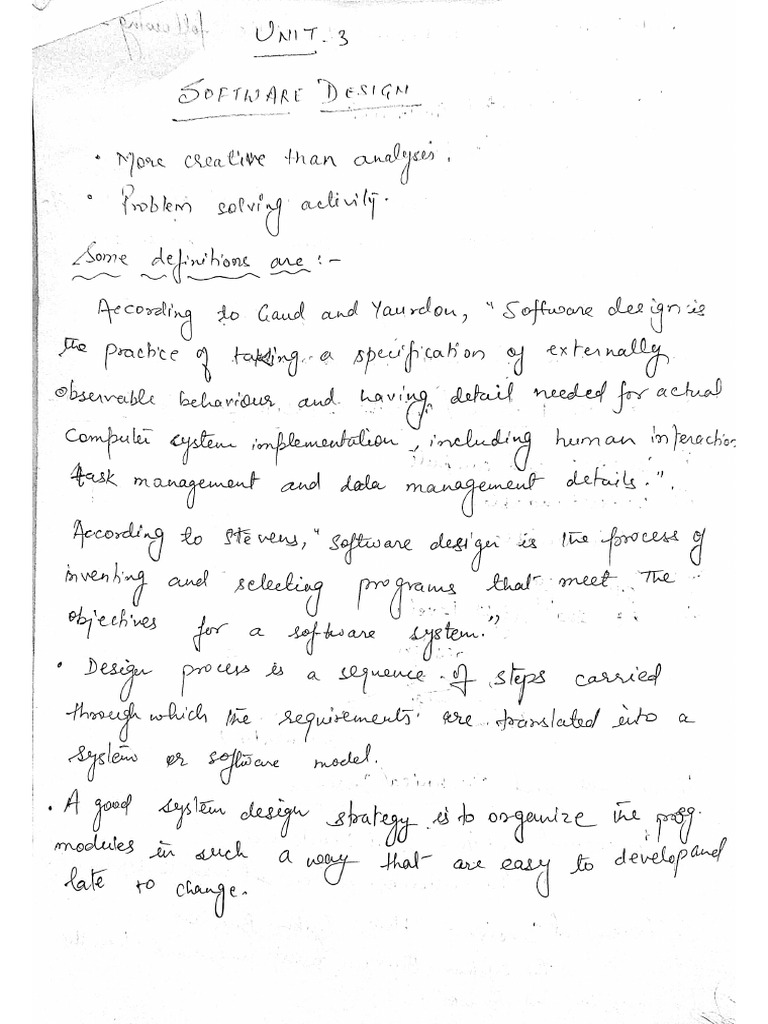 UNIT-3
SOFTWARE DESIGN
• More creative than analysis.
• Problem solving activity.
Some definitions are :-
According to Gaud and Yaurdon, "Software design is
the practice of taking a specification of externally
observable behaviour and having detail needed for actual
computer system implementation, including human interaction
task management and data management details.".
According to Stevens, "Software design is the process of
inventing and selecting programs that meet the
objectives for a software system."
• Design process is a sequence of steps carried
through which the requirements are translated into a
system or software model.
• A good system design strategy is to organize the prog.
modules in such a way that are easy to develop and
late to change.